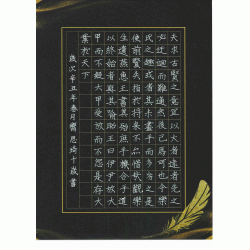 夫求古賢之意宜以大者遠者先之
必迂迴而難通然後已焉可也今樂
氏之趣或者其未盡乎而多劣之是
使前賢失指於將來不亦惜哉觀樂
生遺燕惠王書其殆庶乎機合乎道
以終始者與其喻昭王曰伊尹放大
甲而不疑大甲受放而不怨是存大
業於天下
歲次辛丑年春月思琦十歲書